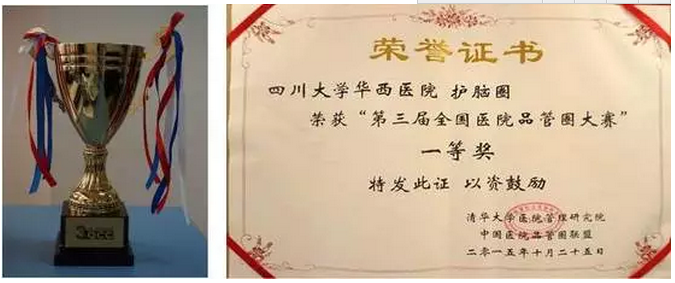 荣誉证书
四川大学华西医院 护脑圈
荣获“第三届全国医院品管圈大赛”
一等奖
特发此证 以资鼓励
清华大学医院管理研究院
中国医院品管圈联盟
二〇一五年十月二十五日